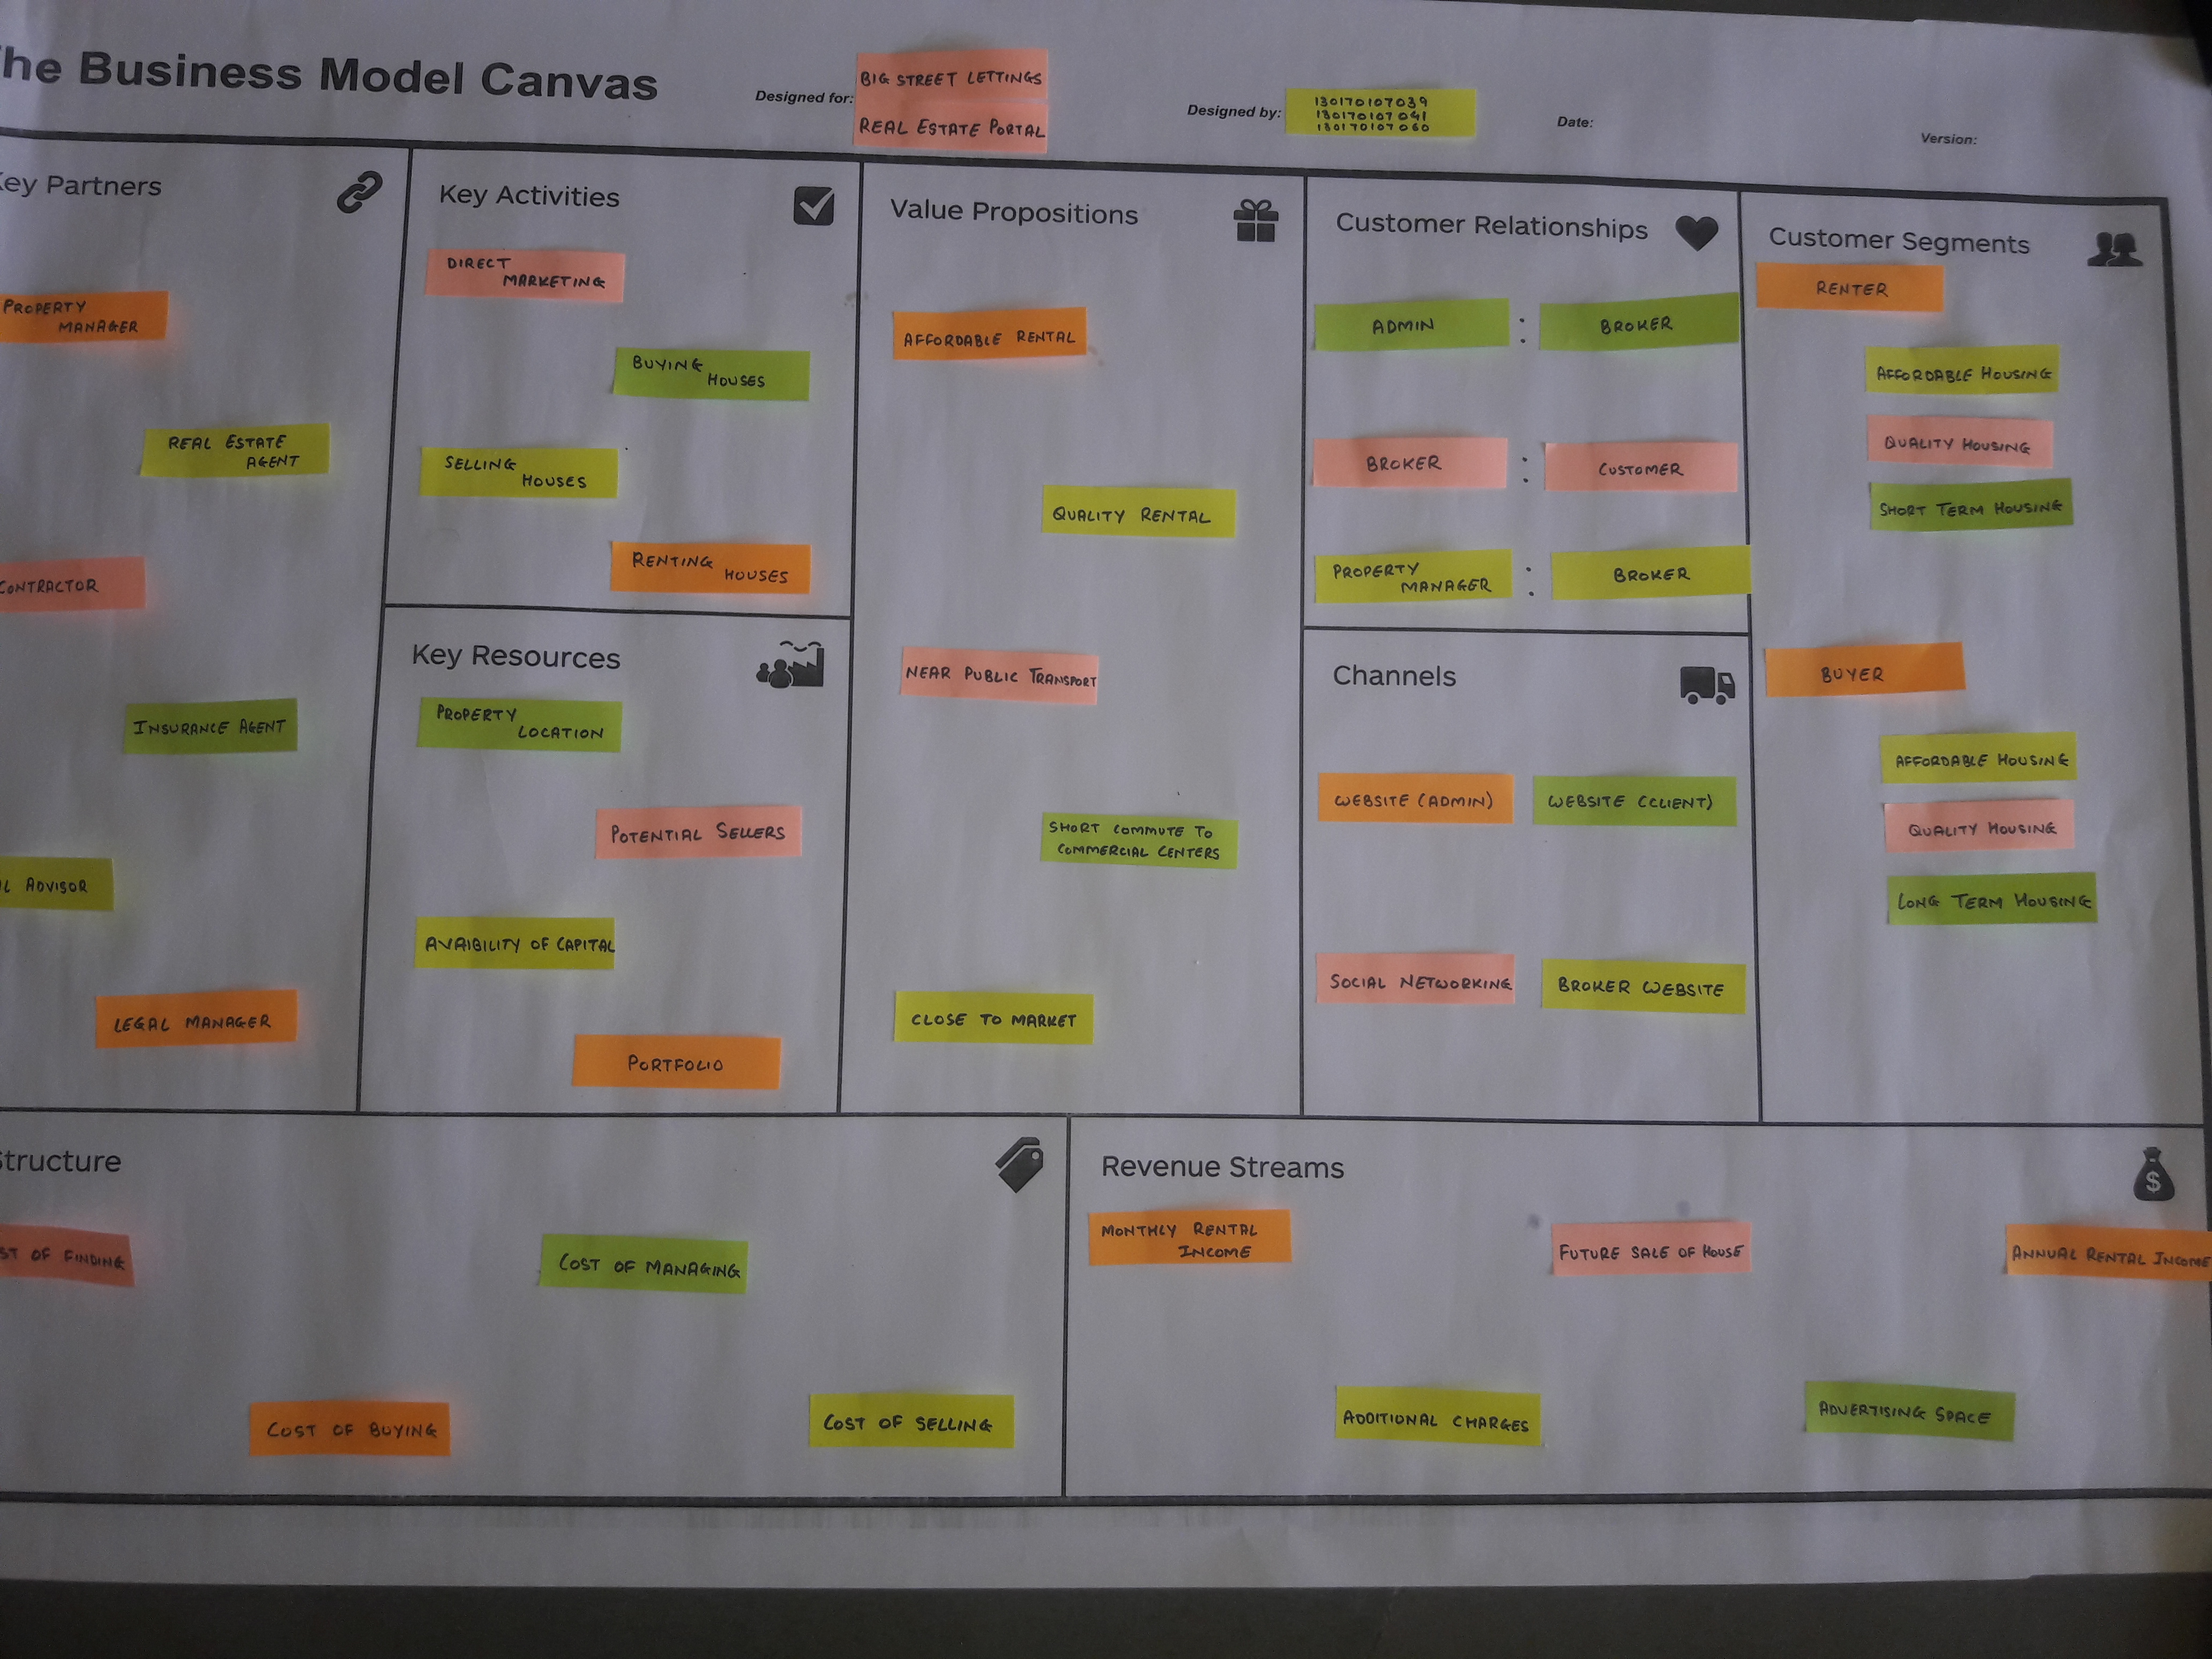 The Business Model Canvas
Designed for:
BIG STREET LETTINGS
REAL ESTATE PORTAL
Designed by:
130170107039
130170107041
130170107060
Date:
Version:
Key Partners
PROPERTY
MANAGER
REAL ESTATE
AGENT
CONTRACTOR
INSURANCE AGENT
ADVISOR
LEGAL MANAGER
Key Activities
DIRECT
MARKETING
BUYING
HOUSES
SELLING
HOUSES
RENTING
HOUSES
Key Resources
PROPERTY
LOCATION
POTENTIAL SELLERS
AVAIBILITY OF CAPITAL
PORTFOLIO
Value Propositions
AFFORDABLE RENTAL
QUALITY RENTAL
NEAR PUBLIC TRANSPORT
SHORT COMMUTE TO
COMMERCIAL CENTERS
CLOSE TO MARKET
Customer Relationships
ADMIN : BROKER
BROKER : CUSTOMER
PROPERTY
MANAGER : BROKER
Channels
WEBSITE (ADMIN)
WEBSITE (CLIENT)
SOCIAL NETWORKING
BROKER WEBSITE
Customer Segments
RENTER
AFFORDABLE HOUSING
QUALITY HOUSING
SHORT TERM HOUSING
BUYER
AFFORDABLE HOUSING
QUALITY HOUSING
LONG TERM HOUSING
Structure
OF FINDING
COST OF MANAGING
COST OF BUYING
COST OF SELLING
Revenue Streams
MONTHLY RENTAL
INCOME
FUTURE SALE OF HOUSE
ANNUAL RENTAL INCOME
ADDITIONAL CHARGES
ADVERTISING SPACE
$